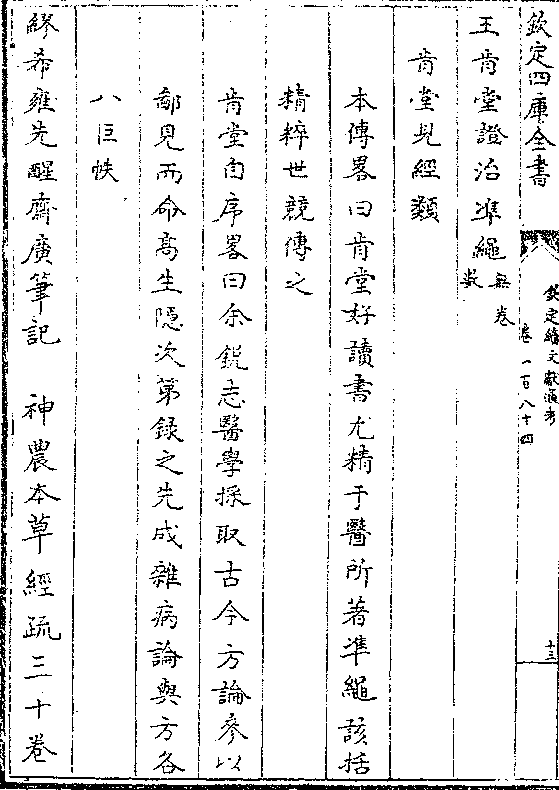 欽定四庫全書
欽定續文獻通考
卷一百八十四
十三
王肯堂證治準繩無卷數
肯堂見經類
本傳畧曰肯堂好讀書尤精于醫所著準繩該括
精粹世競傳之
肯堂自序畧曰余鋭志醫學採取古今方論參以
鄙見而命高生隱次第録之先成雜病論與方各
八巨帙
繆希雍先醒齋廣筆記　神農本草經疏三十卷